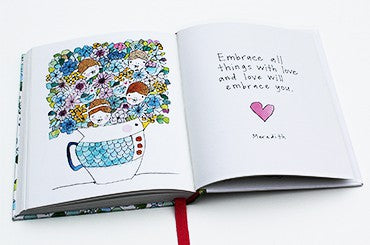 Embrace all
things with love
and love will
embrace you.
Meredith